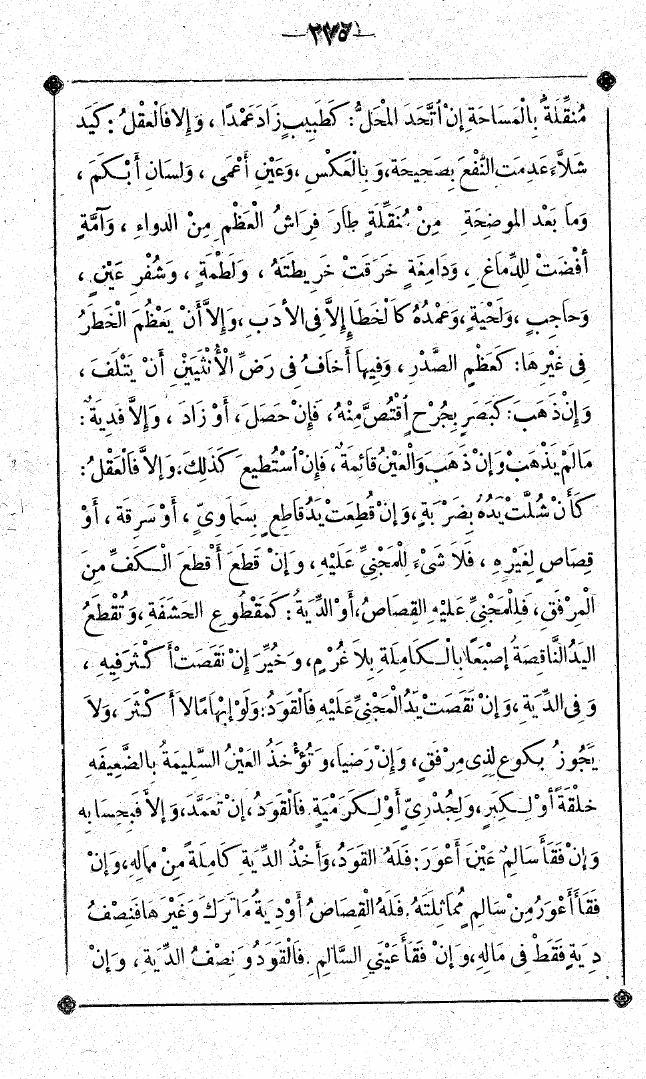 — ٢٧٥ —
مُنَقِّلَةٌ بِالْمَسَاحَةِ إِنْ اُتَّحَدَ الْمَحَلُّ : كَطَبِيبٍ زَادَ عَمْدًا ، وَإِلا فَالْعَقْلُ : كَيَد
شَلاَّءَ عَدِمَتِ النَّفْعَ بِصَحِيحَةٍ ، وَبِالْعَكْسِ ، وَعَيْنِ أَعْمَى ، وَلِسَانِ أَبْكَمَ ،
وَمَا بَعْدَ الموضِحَةِ مِنْ مُنَقِّلَةٍ طَارَ فِرَاشُ الْعَظْمِ مِنْ الدواءِ ، وَآمَّةٍ
أَفْضَتْ لِلدِّمَاغِ ، وَدَامِغَةٍ خَرَقَتْ خَرِيطَتَهُ ، وَلَطْمَةٍ ، وَشُفْرِ عَيْنٍ ،
وَحَاجِبٍ ، وَلِحْيَةٍ ، وَعَمْدُهُ كَالْخَطَإِ إِلاَّ فِى الأَدَبِ ، وَإِلاَّ أَنْ يَعْظُمَ الْخَطَرُ
فِى غَيْرِهَا : كَعَظْمِ الصَّدْرِ ، وَفِيها أَخَافُ فِى رَضِّ الْأُنْثَيَيْنِ أَنْ يَتْلَفَ ،
وَإِنْ ذَهَبَ : كَبَصَرٍ بِجُرْحٍ اُقْتُصَّ مِنْهُ ، فَإِنْ حَصَلَ ، أَوْ زَادَ ، وَإِلاَّ فَدِيَةٌ :
مَالَمْ يَذْهَبْ وَإِنْ ذَهَبَ وَالْعَيْنُ قَائِمَةٌ ، فَإِنْ اُسْتُطِيعَ كَذلِكَ . وَإِلاَّ فَالْعَقْلُ :
كَأَنْ شُلَّتْ يَدُهُ بِضَرْبَةٍ ، وَإِنْ قُطِعَتْ يَدُ قَاطِعٍ بِسَمَاوِىٍّ ، أَوْ سَرِقَةٍ ، أَوْ
قِصَاصٍ لِغَيْرِهِ ، فَلاَ شَىْءَ لِلْمَجْنِىِّ عَلَيْهِ ، وَإِنْ قَطَعَ أَقْطَعَ الْكَفِّ مِنَ
الْمِرْفَقِ ، فَلِلْمَجْنِىِّ عَلَيْهِ القصَاصُ ، أَوْ الدِّيَةُ : كَمَقْطُوعِ الحَشَفَةِ ، وَتُقْطَعُ
اليَدُ النَّاقِصَةُ إِصْبَعًا بِالْكَامِلَةِ بِلاَ غُرْمٍ ، وَخُيِّرَ إِنْ نَقَصَتْ أَكْثَرَ فِيهِ ،
وَفِى الدِّيَةِ ، وَإِنْ نَقَصَتْ يَدُ الْمَجْنِىِّ عَلَيْهِ فَالْقَوَدُ : وَلَوْ إِبْهَامًا لا أَكْثَرَ ، وَلاَ
يَجُوزُ بِكُوعٍ لِذِى مِرْفَقٍ ، وَإِنْ رَضِيَا ، وَتُؤْخَذُ العَيْنُ السَّلِيمَةُ بِالضَّعِيفَهِ
خِلْقَةً أَوْ لِكِبَرٍ ، وَلِجُدْرِىٍّ أَوْ لِكَرَمْيَةٍ فَالْقَوَدُ ، إِنْ تَعَمَّدَ ، وَإِلاَّ فَبِحِسَابِهِ
وَإِنْ فَقَأَ سَالِمٌ عَيْنَ أَعْوَرَ : فَلَهُ القَوَدُ ، وَأَخْذُ الدِّيَةِ كَامِلَةً مِنْ مَالِهِ ، وَإِنْ
فَقَأَ أَعْوَرُ مِنْ سَالِمٍ مُمَاثِلَتَهُ . فَلَهُ الْقِصَاصُ أَوْ دِيَةُ مَا تَرَكَ وَغَيْرَهَا فَنِصْفُ
دِيَةٍ فَقَطْ فِى مَالِهِ ، وَإِنْ فَقَأَ عَيْنَىِ السَّالِمِ . فَالْقَوَدُ وَنِصْفُ الدِّيَةِ ، وَإِنْ